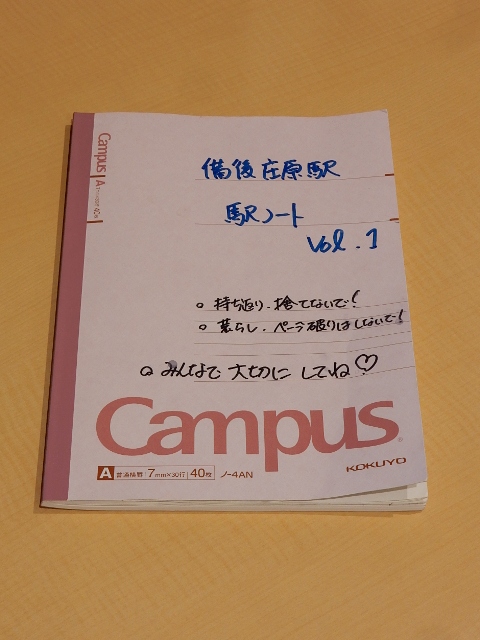 Campus
備後庄原駅
駅ノート
Vol.1
○ 持ち返り・捨てないで!
○ 荒らし・ページ破りはしないで!
○ みんなで 大切に してね♡
Campus
KOKUYO
A 普通横罫 7mm×30行 40枚 ノ-4AN